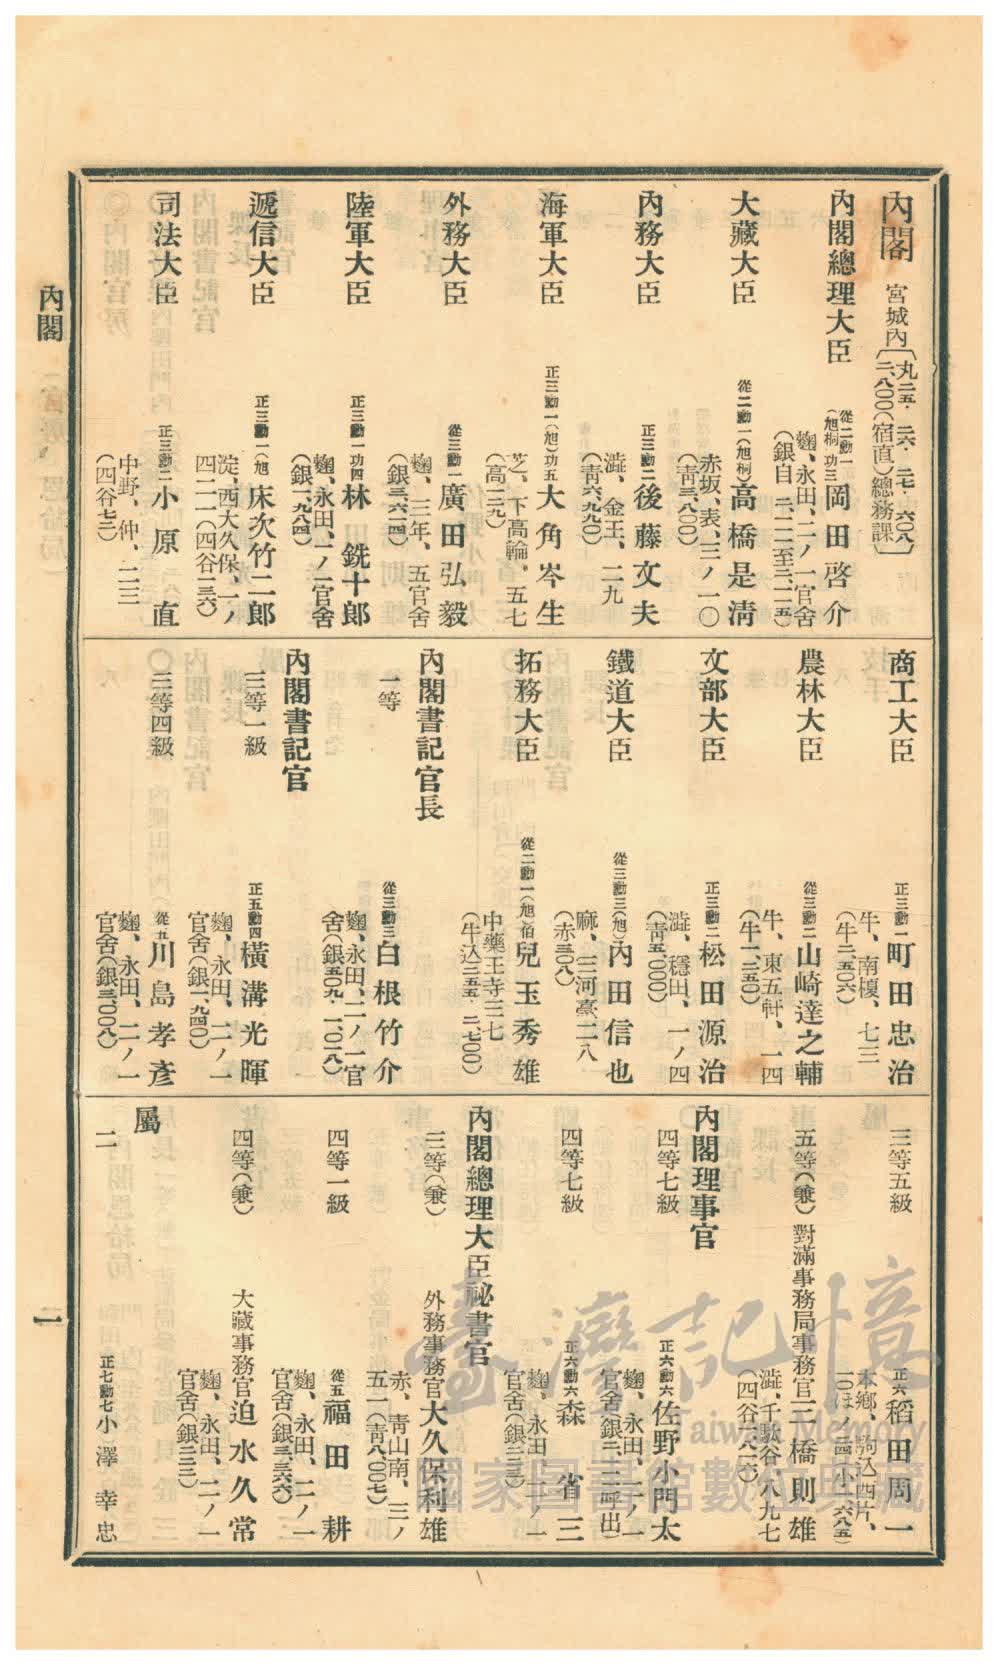 內閣
二
內閣 宮城內〔丸二五・二六・二七・六〇八 二、八〇〇(宿直)總務課〕
內閣總理大臣 從二勳一(旭桐)功三 岡田啓介
麴、永田、二ノ一官舍
(銀自三、二二至三、二五)
大藏大臣 從二勳一(旭桐) 高橋是淸
赤坂、表、三ノ一〇
(靑三、八〇〇)
內務大臣 正三勳二 後藤文夫
澁、金王、二九
(靑六、九九〇)
海軍大臣 正三勳一(旭)功五 大角岑生
芝、下高輪、五七
(高一二九)
外務大臣 從三勳一 廣田弘毅
麴、三年、五官舍
(銀三、六一四)
陸軍大臣 正三勳一功四 林銑十郎
麴、永田、一ノ二官舍
(銀一、九八四)
遞信大臣 正三勳一(旭) 床次竹二郎
淀、西大久保、一ノ
四二一(四谷一三六)
司法大臣 正三勳二 小原直
中野、仲、二三
(四谷七二)
商工大臣 正三勳二 町田忠治
牛、南榎、七三
(牛二、五〇六)
農林大臣 從三勳二 山崎達之輔
牛、東五軒、一四
(牛一、二五〇)
文部大臣 正三勳二 松田源治
澁、穩田、一ノ四
(靑五、〇〇〇)
鐵道大臣 從三勳三(旭) 內田信也
麻、三河臺、二八
(赤三〇八)
拓務大臣 從二勳一(旭)伯 兒玉秀雄
中藥王寺三七
(牛込二三五・二、七〇〇)
內閣書記官長
一等 從三勳三 白根竹介
麴、永田、二ノ一官
舍(銀五〇九・一、〇二八)
內閣書記官
三等一級 正五勳四 橫溝光暉
麴、永田、二ノ一
官舍(銀一、九四〇)
三等四級 從五 川島孝彥
麴、永田、二ノ一
官舍(銀三、〇〇八)
三等五級 正六 稻田周一
本鄕、駒込四片、
一〇ほノ一
五等(兼) 對滿事務局事務官 三橋則雄
澁、千駄谷、八九七
(四谷一八二六)
內閣理事官
四等七級 正六勳六 佐野小門太
麴、永田、二ノ一
官舍(銀二、二二呼出)
四等七級 正六勳六 森省三
麴、永田、二ノ一
官舍(銀三三)
內閣總理大臣祕書官
三等(兼) 外務事務官 大久保利雄
赤、靑山南、三ノ
五一(靑八、〇〇七)
四等一級 從五 福田耕
麴、永田、二ノ一
官舍(銀三、三六六)
四等(兼) 大藏事務官 迫水久常
麴、永田、二ノ一
官舍(銀三三)
屬
二 正七勳七 小澤幸忠
臺灣記憶
Taiwan Memory
國家圖書館數位典藏